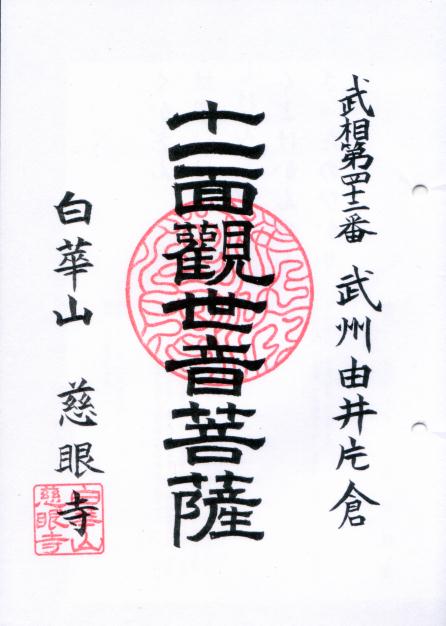 武相第四十二番 武州由井片倉
十一面觀世音菩薩
白華山 慈眼寺
白華山
慈眼寺